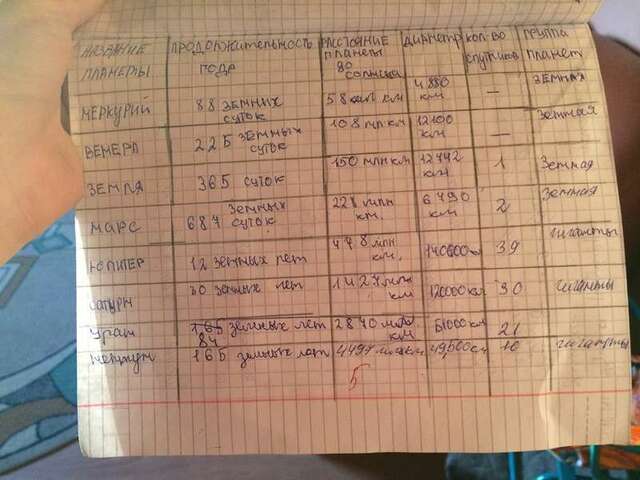 НАЗВАНИЕ ПЛАНЕТЫ ПРОДОЛЖИТЕЛЬНОСТЬ ГОДА РАССТОЯНИЕ ПЛАНЕТЫ ДО СОЛНЦА ДИАМЕТР КОЛ-ВО СПУТНИКОВ ГРУППА ПЛАНЕТ
МЕРКУРИЙ 88 ЗЕМНЫХ СУТОК 58 млн км 4880 км — ЗЕМНАЯ
ВЕНЕРА 225 ЗЕМНЫХ СУТОК 108 млн км 12100 км — Земная
ЗЕМЛЯ 365 СУТОК 150 млн км 12742 км 1 Земная
МАРС 687 ЗЕМНЫХ СУТОК 228 млн км. 6790 км 2 Земная
ЮПИТЕР 12 земных лет 778 млн км. 140600 км 39 гиганты
САТУРН 30 земных лет 1427 млн км 120000 км 30 гиганты
Уран 165 земных лет 84 2870 млн км 51000 км 21
Нептун 165 земных лет 4497 млн км 49500 км 10 гиганты
5